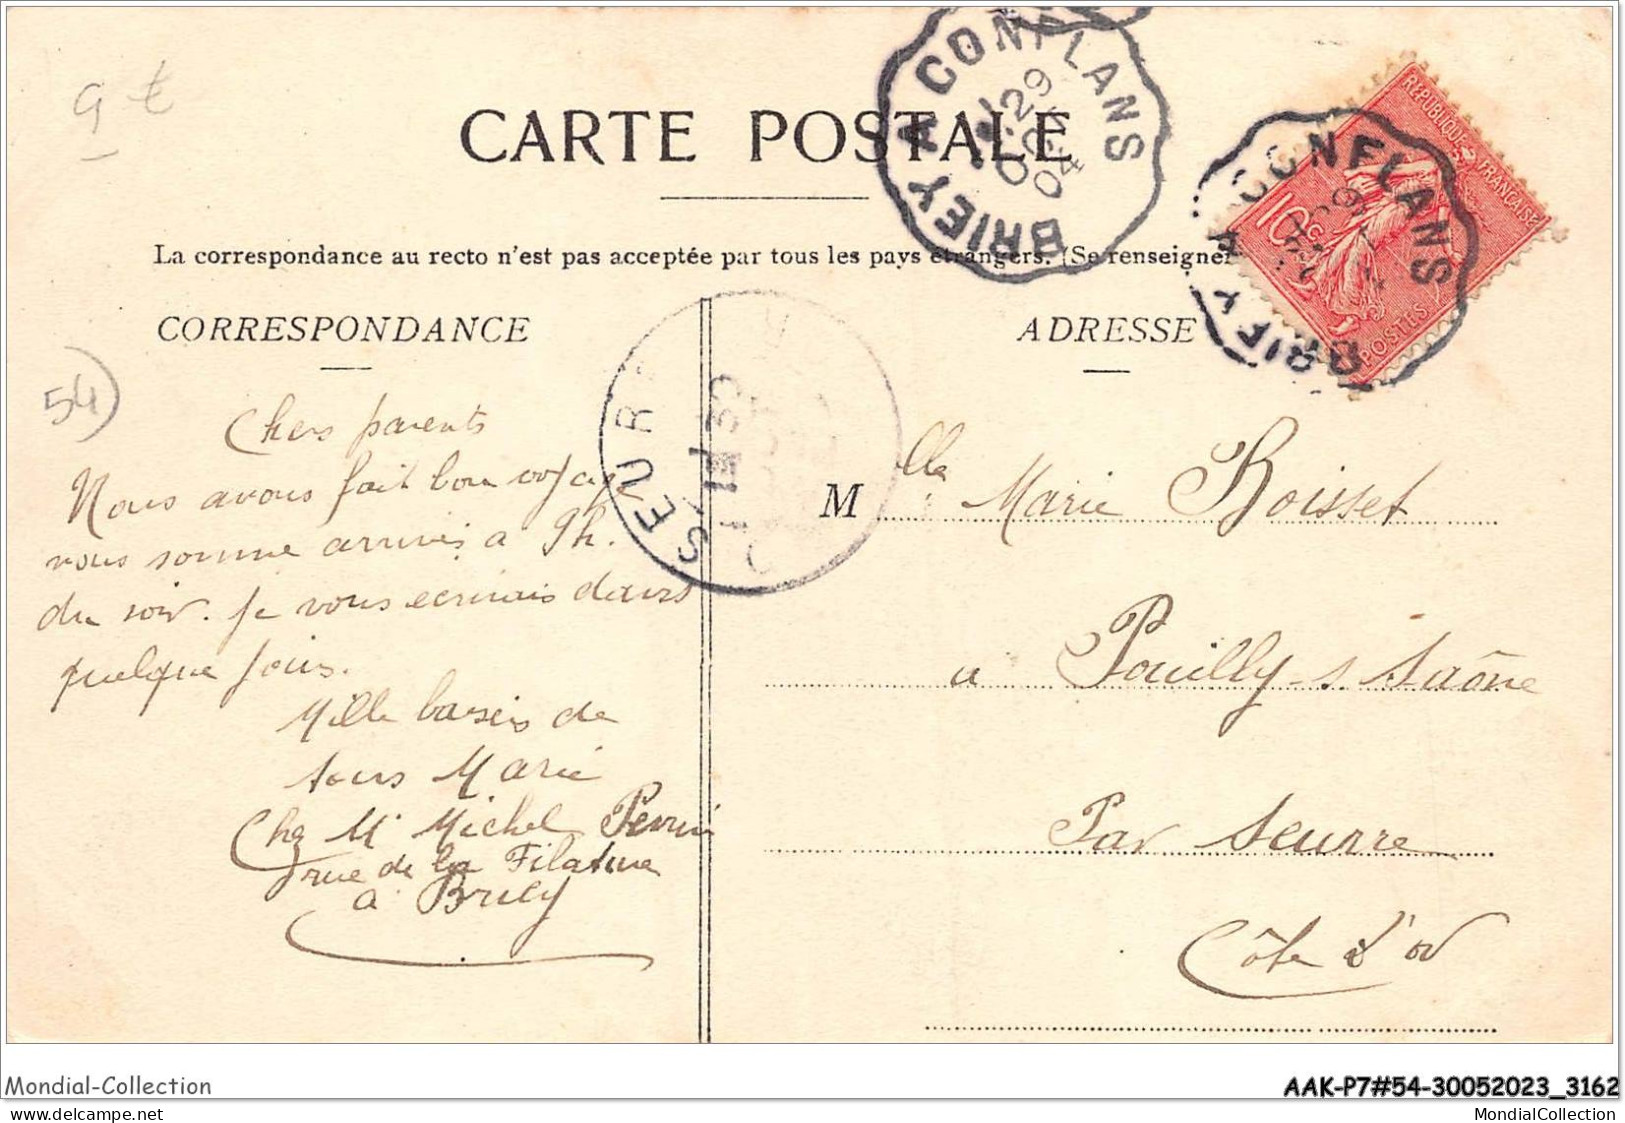 g t
CARTE POSTALE
BRIEY A CONFLANS
29
OCT
04
RÉPUBLIQUE FRANÇAISE
10 c
POSTES
BRIEY A CONFLANS
La correspondance au recto n'est pas acceptée par tous les pays étrangers. (Se renseigner
CORRESPONDANCE
ADRESSE
54
SEURRE
Chers parents
Nous avons fait bon voyage
nous somme arrivés a 9h.
du soir. je vous ecrirais dans
quelque jours.
Mille baisers de
tous Marie
Chez Mr Michel Perrin
rue de la Filature
a Briey
Mlle Marie Boisset
a Pouilly s. Saône
Par Seurre
Côte d'or
Mondial-Collection
AAK-P7#54-30052023_3162
© delcampe.net
MondialCollection